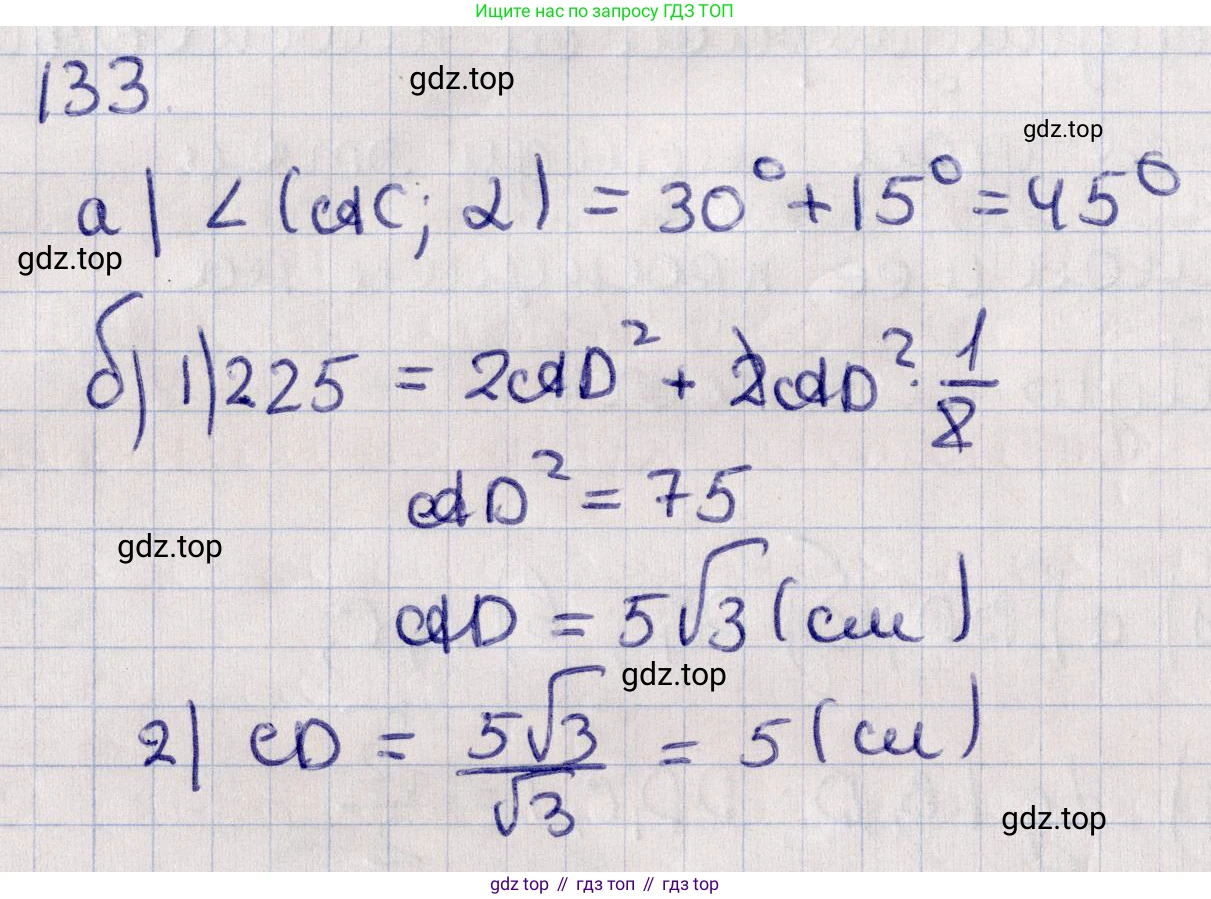 Ищите нас по запросу ГДЗ ТОП
133
gdz.top
gdz.top
а) ∠(AC; α) = 30° + 15° = 45°
gdz.top
б) 1) 225 = 2AD² + 2AD² · 1/2
AD² = 75
gdz.top
AD = 5√3 (см)
gdz.top
2) CD = 5√3/√3 = 5 (см)
gdz.top
gdz top // гдз топ // gdz top